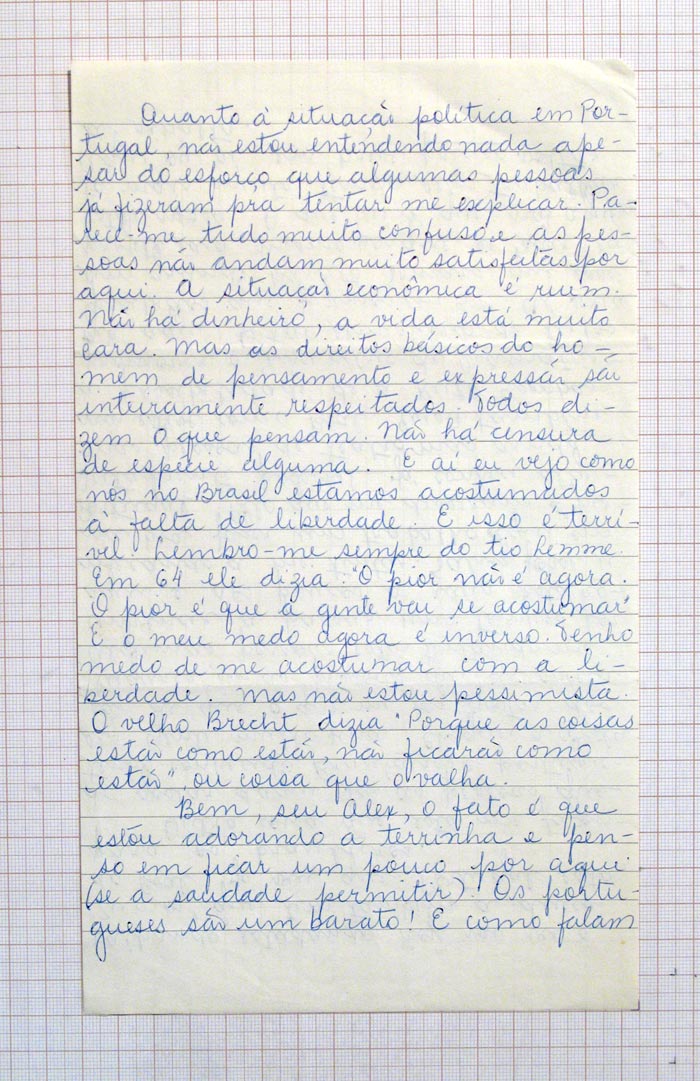 Quanto à situação política em Por-
tugal, não estou entendendo nada ape-
sar do esforço que algumas pessoas
já fizeram pra tentar me explicar. Pa-
rece-me tudo muito confuso e as pes-
soas não andam muito satisfeitas por
aqui. A situação econômica é ruim.
Não há dinheiro, a vida está muito
cara. Mas os direitos básicos do ho-
mem de pensamento e expressão são
inteiramente respeitados. Todos di-
zem o que pensam. Não há censura
de espécie alguma. E aí eu vejo como
nós no Brasil estamos acostumados
à falta de liberdade. E isso é terrí-
vel. Lembro-me sempre do tio Lemme.
Em 64 ele dizia: "O pior não é agora.
O pior é que a gente vai se acostumar"
E o meu medo agora é inverso. Tenho
medo de me acostumar com a li-
berdade. Mas não estou pessimista.
O velho Brecht dizia "Porque as coisas
estão como estão, não ficarão como
estão", ou coisa que o valha.
Bem, seu Alex, o fato é que
estou adorando a terrinha e pen-
so em ficar um pouco por aqui
(se a saudade permitir). Os portu-
gueses são um barato! E como falam